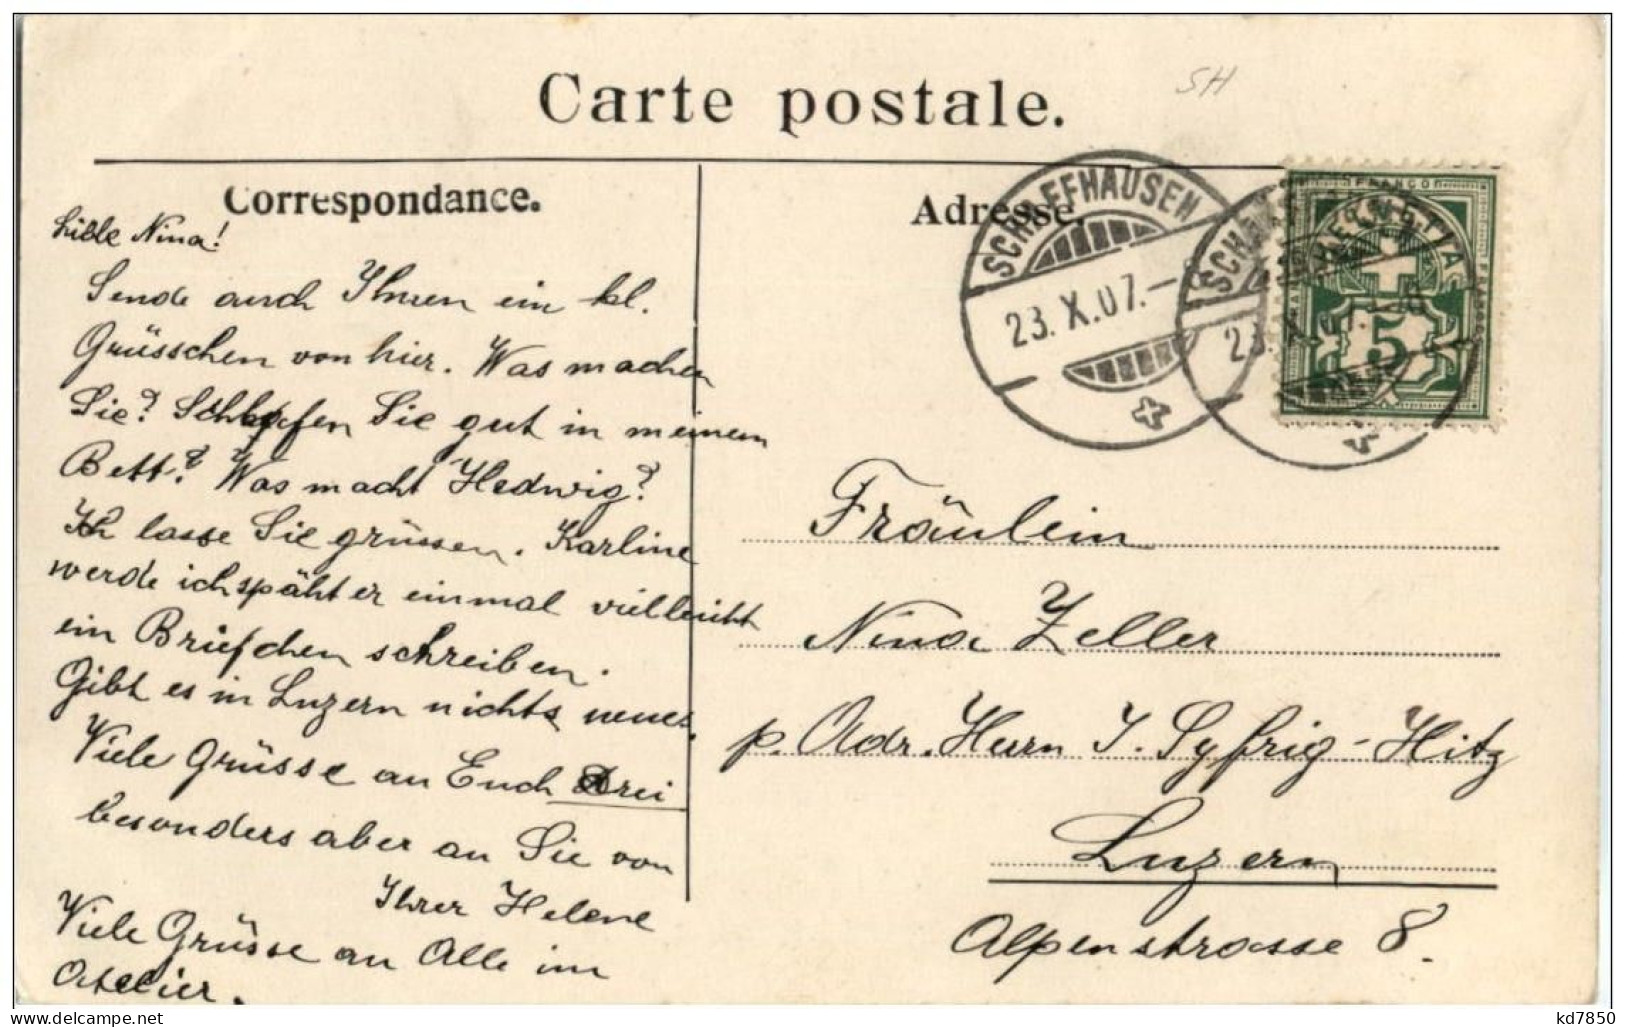 SH
Carte postale.
Correspondance.
Adresse.
SCHAFFHAUSEN
23. X. 07.
SCHAFF
23. X. 07.
FRANCO
HELVETIA
5
Liebe Nina!
Sende auch Ihnen ein kl.
Grüsschen von hier. Was machen
Sie? Schlafen Sie gut in meinem
Bett? Was macht Hedwig?
Ich lasse Sie grüssen. Karline
werde ich späht er einmal vielleicht
ein Briefchen schreiben.
Gibt es in Luzern nichts neues.
Viele Grüsse an Euch Drei
besonders aber an Sie von
Ihrer Helene
Viele Grüsse an Alle im
Atelier.
Fräulein
Nina Zeller
p. Adr. Herrn J. Syfrig-Hitz
Luzern
Alpenstrasse 8.
kd7850